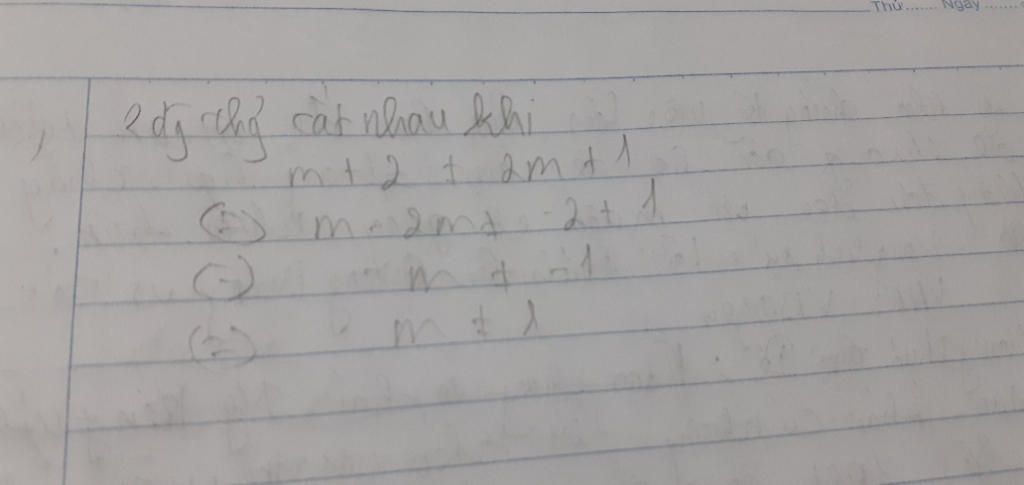 Thứ....... Ngày.......
2 đg thg cắt nhau khi
m + 2 ≠ 2m + 1
(=) m - 2m ≠ -2 + 1
(=) - m ≠ -1
(=) m ≠ 1